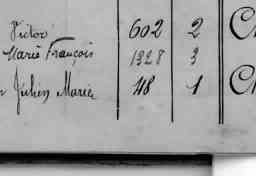 Victor 602 2
Marie François 1928 3
Julien Marie 48 1